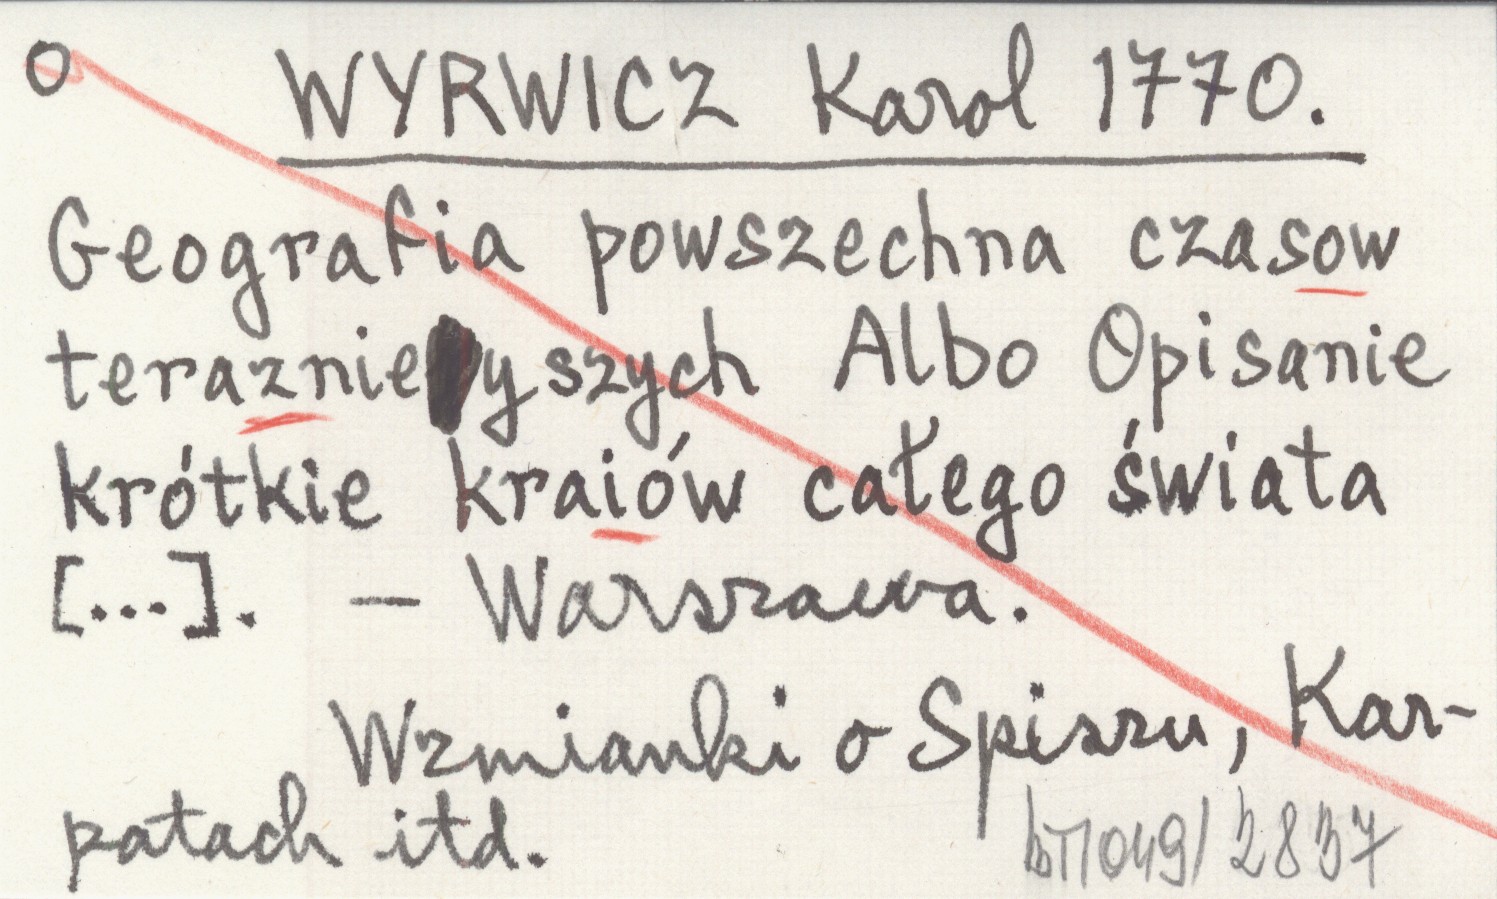 O WYRWICZ Karol 1770.
Geografia powszechna czasow
teraznieyszych Albo Opisanie
krótkie kraiów całego świata
[...]. — Warszawa.
Wzmianki o Spiszu, Kar-
patach itd.
2837